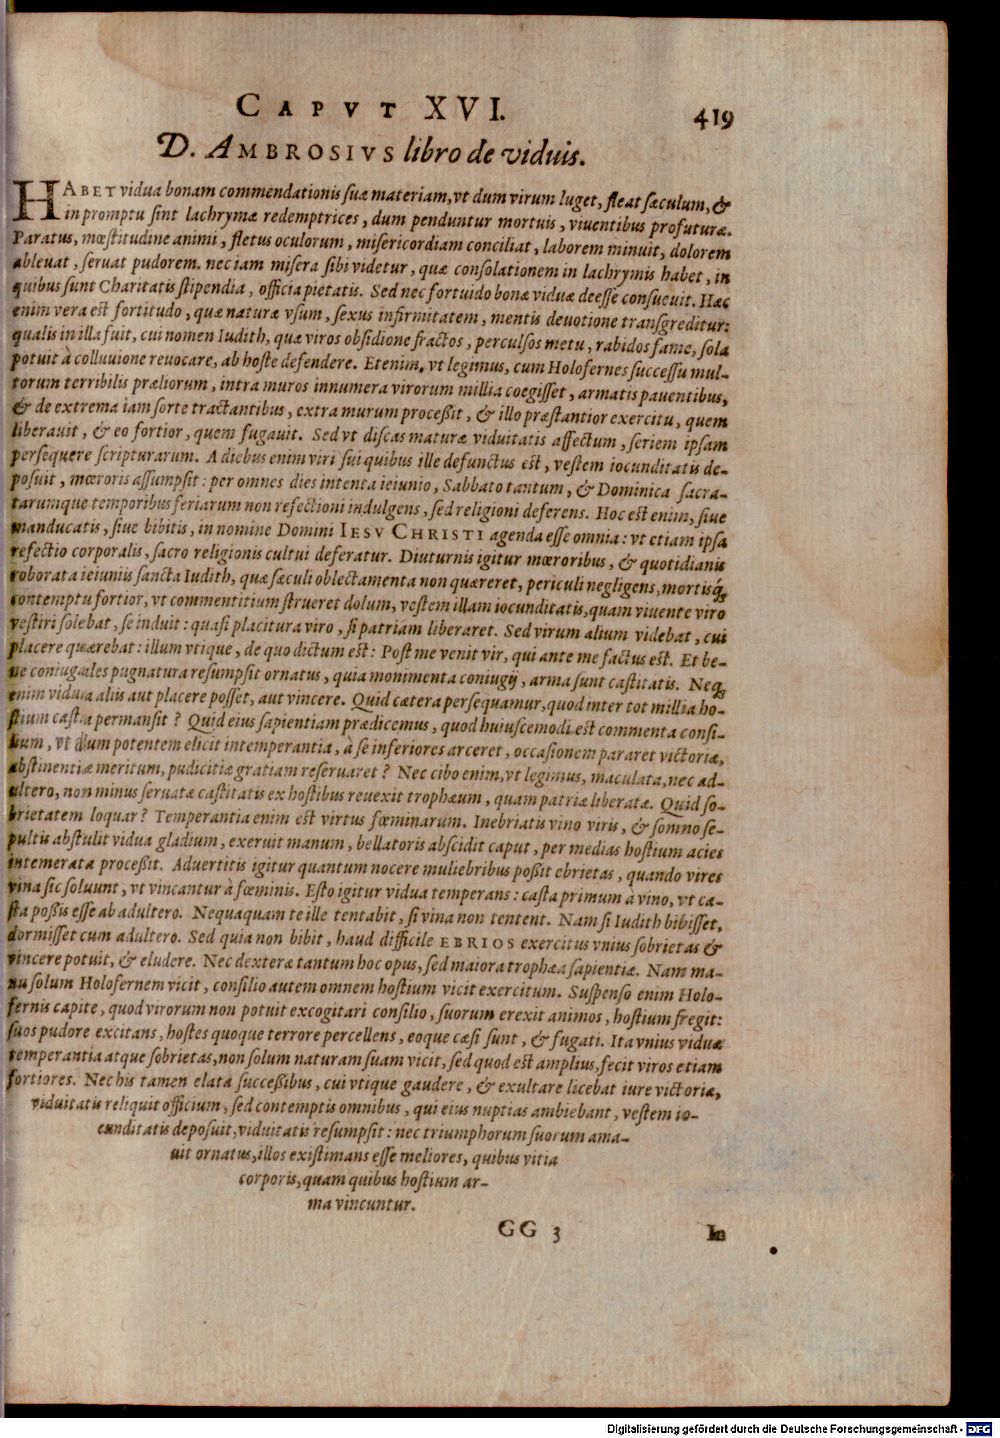 CAPVT XVI. 419
D. AMBROSIVS libro de viduis.
HABET vidua bonam commendationis suæ materiam, vt dum virum luget, fleat sæculum, &
in promptu sint lachrymæ redemptrices, dum penduntur mortuis, viuentibus profuturæ.
Paratus, mœstitudine animi, fletus oculorum, misericordiam conciliat, laborem minuit, dolorem
ableuat, seruat pudorem. nec iam misera sibi videtur, quæ consolationem in lachrymis habet, in
quibus sunt Charitatis stipendia, officia pietatis. Sed nec fortuido bonæ viduæ deesse consueuit. Hæc
enim vera est fortitudo, quæ naturæ vsum, sexus infirmitatem, mentis deuotione transgreditur:
qualis in illa fuit, cui nomen Iudith, quæ viros obsidione fractos, perculsos metu, rabidos fame, sola
potuit à colluuione reuocare, ab hoste defendere. Etenim, vt legimus, cum Holofernes successu mul-
torum terribilis præliorum, intra muros innumera virorum millia coegisset, armatis pauentibus,
& de extrema iam sorte tractantibus, extra murum proceßit, & illo præstantior exercitu, quem
liberauit, & eo fortior, quem fugauit. Sed vt discas maturæ viduitatis affectum, seriem ipsam
persequere scripturarum. A diebus enim viri sui quibus ille defunctus est, vestem iocunditatis de-
posuit, mœroris assumpsit: per omnes dies intenta ieiunio, Sabbato tantum, & Dominica sacra-
tarumque temporibus feriarum non refectioni indulgens, sed religioni deferens. Hoc est enim, siue
manducatis, siue bibitis, in nomine Domini IESV CHRISTI agenda esse omnia: vt etiam ipsa
refectio corporalis, sacro religionis cultui deferatur. Diuturnis igitur mœroribus, & quotidianis
roborata ieiuniis sancta Iudith, quæ sæculi oblectamenta non quæreret, periculi negligens, mortisq́;
contemptu fortior, vt commentitium strueret dolum, vestem illam iocunditatis, quam viuente viro
vestiri solebat, se induit: quasi placitura viro, si patriam liberaret. Sed virum alium videbat, cui
placere quærebat: illum vtique, de quo dictum est: Post me venit vir, qui ante me factus est. Et be-
ne coniugales pugnatura resumpsit ornatus, quia monimenta coniugij, arma sunt castitatis. Neq;
enim vidua aliis aut placere posset, aut vincere. Quid cætera persequamur, quod inter tot millia ho-
stium casta permansit? Quid eius sapientiam prædicemus, quod huiuscemodi est commenta consi-
lium, vt dum potentem elicit intemperantia, à se inferiores arceret, occasionem pararet victoriæ,
abstinentiæ meritum, pudicitiæ gratiam reseruaret? Nec cibo enim, vt legimus, maculata, nec ad-
ultero, non minus seruatæ castitatis ex hostibus reuexit trophæum, quam patriæ liberatæ. Quid so-
brietatem loquar? Temperantia enim est virtus fœminarum. Inebriatis vino viris, & somno se-
pultis abstulit vidua gladium, exeruit manum, bellatoris abscidit caput, per medias hostium acies
intemerata proceßit. Aduertitis igitur quantum nocere muliebribus poßit ebrietas, quando vires
vina sic soluunt, vt vincantur à fœminis. Esto igitur vidua temperans: casta primum à vino, vt ca-
sta poßis esse ab adultero. Nequaquam te ille tentabit, si vina non tentent. Nam si Iudith bibisset,
dormisset cum adultero. Sed quia non bibit, haud difficile EBRIOS exercitus vnius sobrietas &
vincere potuit, & eludere. Nec dexteræ tantum hoc opus, sed maiora trophæa sapientiæ. Nam ma-
nu solum Holofernem vicit, consilio autem omnem hostium vicit exercitum. Suspenso enim Holo-
fernis capite, quod virorum non potuit excogitari consilio, suorum erexit animos, hostium fregit:
suos pudore excitans, hostes quoque terrore percellens, eoque cæsi sunt, & fugati. Ita vnius viduæ
temperantia atque sobrietas, non solum naturam suam vicit, sed quod est amplius, fecit viros etiam
fortiores. Nec his tamen elata succeßibus, cui vtique gaudere, & exultare licebat iure victoriæ,
viduitatis reliquit officium, sed contemptis omnibus, qui eius nuptias ambiebant, vestem io-
cunditatis deposuit, viduitatis resumpsit: nec triumphorum suorum ama-
uit ornatus, illos existimans esse meliores, quibus vitia
corporis, quam quibus hostium ar-
ma vincuntur.
GG 3 In
Digitalisierung gefördert durch die Deutsche Forschungsgemeinschaft - DFG